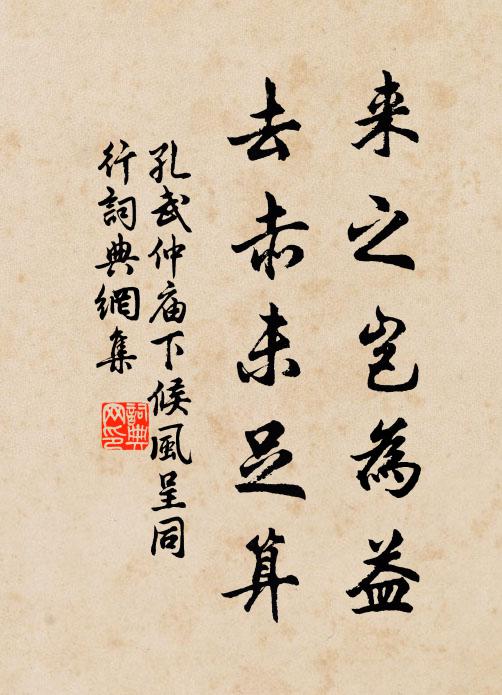 来之岂為益
去赤未足算
孔武仲庙下候風呈同
行詞典網集
詞典网印